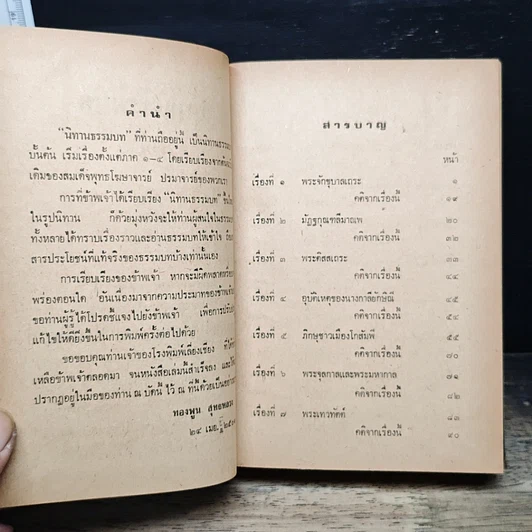 คำนำ
"นิทานธรรมบท" ที่ท่านถืออยู่นี้ เป็นนิทานธรรม
บั้นต้น เริ่มเรื่องตั้งแต่ภาค ๑-๔ โดยเรียบเรียงจาก
เดิมของสมเด็จพุทธโฆษาจารย์ ปรมาจารย์ของพวกเรา
การที่ข้าพเจ้าได้เรียบเรียง "นิทานธรรมบท" ขึ้น
ในรูปนิทาน ก็ด้วยมุ่งหวังจะให้ท่านผู้สนใจในธรรม
ทั้งหลายได้ทราบเรื่องราวและอ่านธรรมบทให้เข้าใจ
สารประโยชน์ที่แท้จริงของธรรมบทบ้างเท่านั้นเอง
การเรียบเรียงของข้าพเจ้า หากจะมีผิดพลาดหรือ
พร่องตอนใด อันเนื่องมาจากความประมาทของข้าพเจ้า
ขอท่านผู้รู้ได้โปรดชี้แจงไปยังข้าพเจ้า เพื่อการปรับ
แก้ไขให้ดียิ่งขึ้นในการพิมพ์ครั้งต่อไปด้วย
ขอขอบคุณท่านเจ้าของโรงพิมพ์เลี่ยงเชียง ที่ได้
เหลือข้าพเจ้าตลอดมา จนหนังสือเล่มนี้สำเร็จลง และได้
ปรากฏอยู่ในมือของท่าน ณ บัดนี้ ไว้ ณ ที่นี้ด้วย
ทองพูน
๒๔ เมย.
สารบาญ
หน้า
เรื่องที่ ๑ พระจักขุบาลเถระ ๑
คติจากเรื่องนี้ ๑๙
เรื่องที่ ๒ มัฏฐกุณฑลีมาณพ ๒๐
คติจากเรื่องนี้ ๓๒
เรื่องที่ ๓ พระติสสเถระ ๓๓
คติจากเรื่องนี้ ๔๔
เรื่องที่ ๔ อุบัติเหตุของนางกาลียักษิณี ๔๕
คติจากเรื่องนี้ ๕๔
เรื่องที่ ๕ ภิกษุชาวเมืองโกสัมพี ๕๕
คติจากเรื่องนี้ ๗๐
เรื่องที่ ๖ พระจุลกาลและพระมหากาล ๗๑
คติจากเรื่องนี้ ๘๒
เรื่องที่ ๗ พระเทวทัตต์ ๘๓
คติจากเรื่องนี้ ๙๐